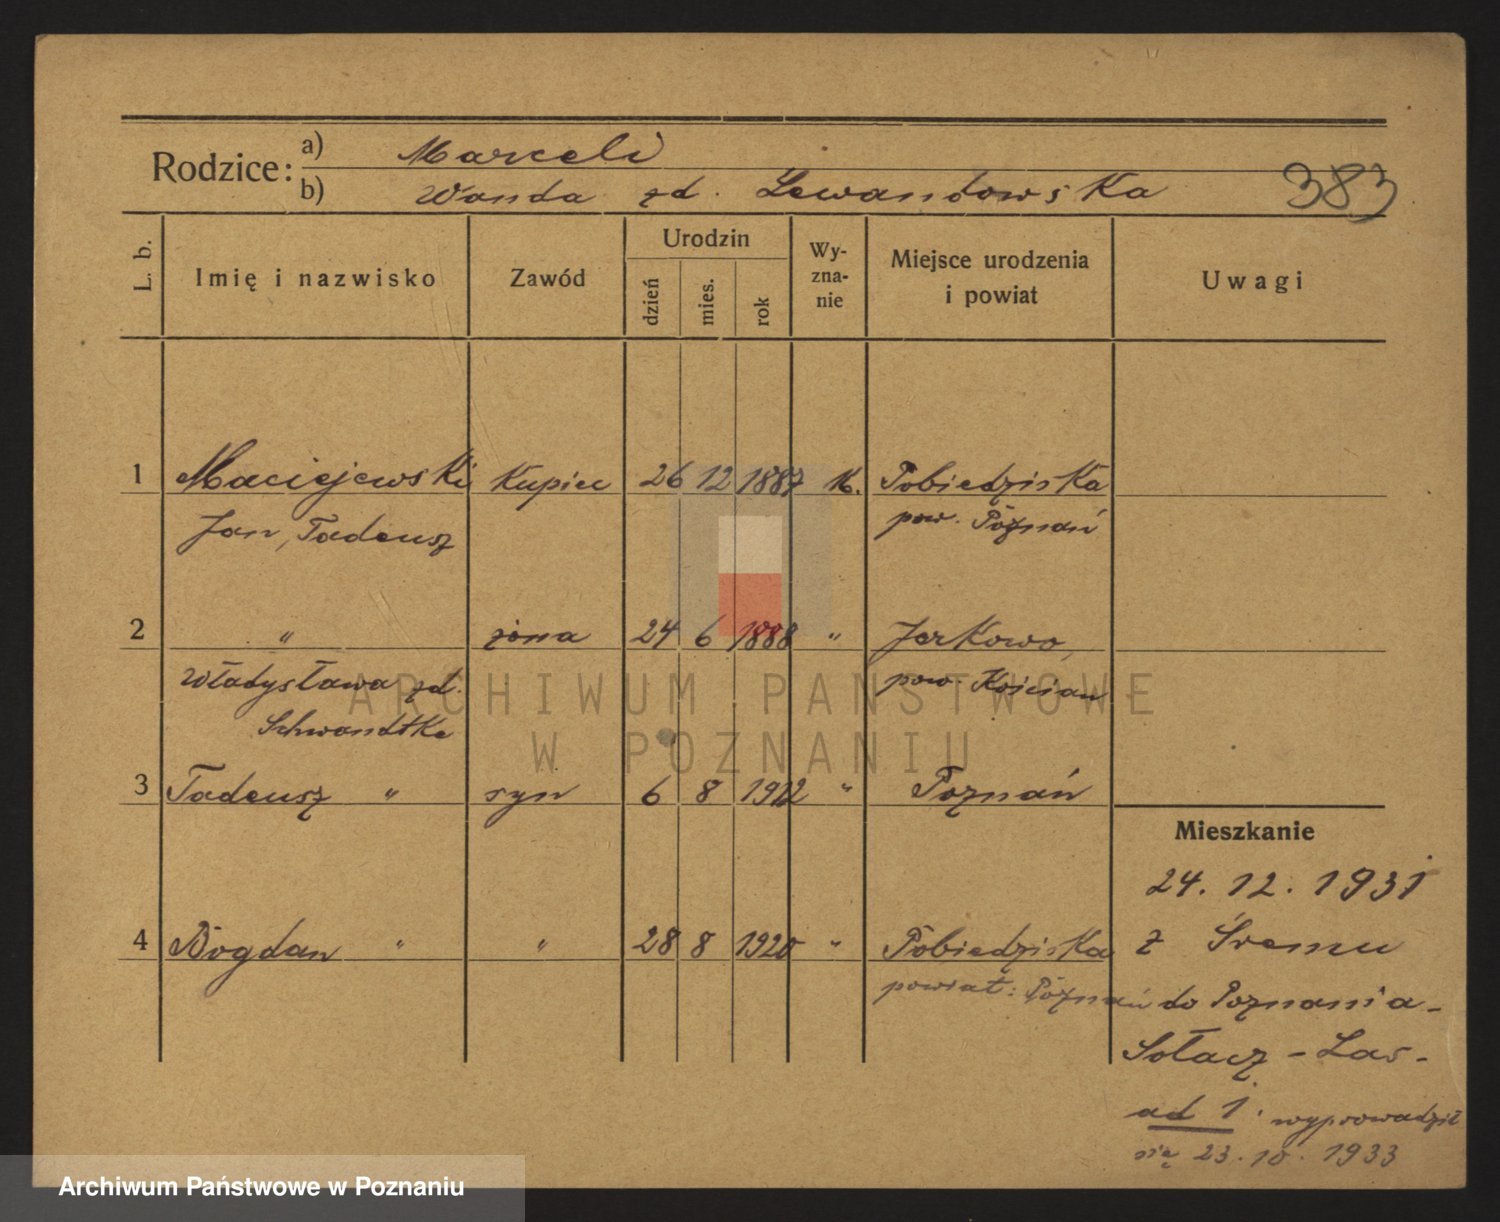 Rodzice: a) Marceli
b) Wanda zd. Lewandowska 383
L. b. Imię i nazwisko Zawód Urodzin dzień mies. rok Wy-zna-nie Miejsce urodzenia i powiat Uwagi
1 Maciejewski Kupiec 26 12 1887 K. Pobiedziska
Jan, Tadeusz pow. Poznań
2 " żona 24 6 1888 " Jerkowo,
Władysława zd. pow. Kościan
Schwandtke
3 Tadeusz " syn 6 8 1912 " Poznań
4 Bogdan " " 28 8 1920 " Pobiedziska
powiat: Poznań
Mieszkanie
24. 12. 1931
z Śremu
do Poznania-
Sołacz - Las-
ad 1. wyprowadził
się 23.10.1933
ARCHIWUM PAŃSTWOWE
W POZNANIU
Archiwum Państwowe w Poznaniu